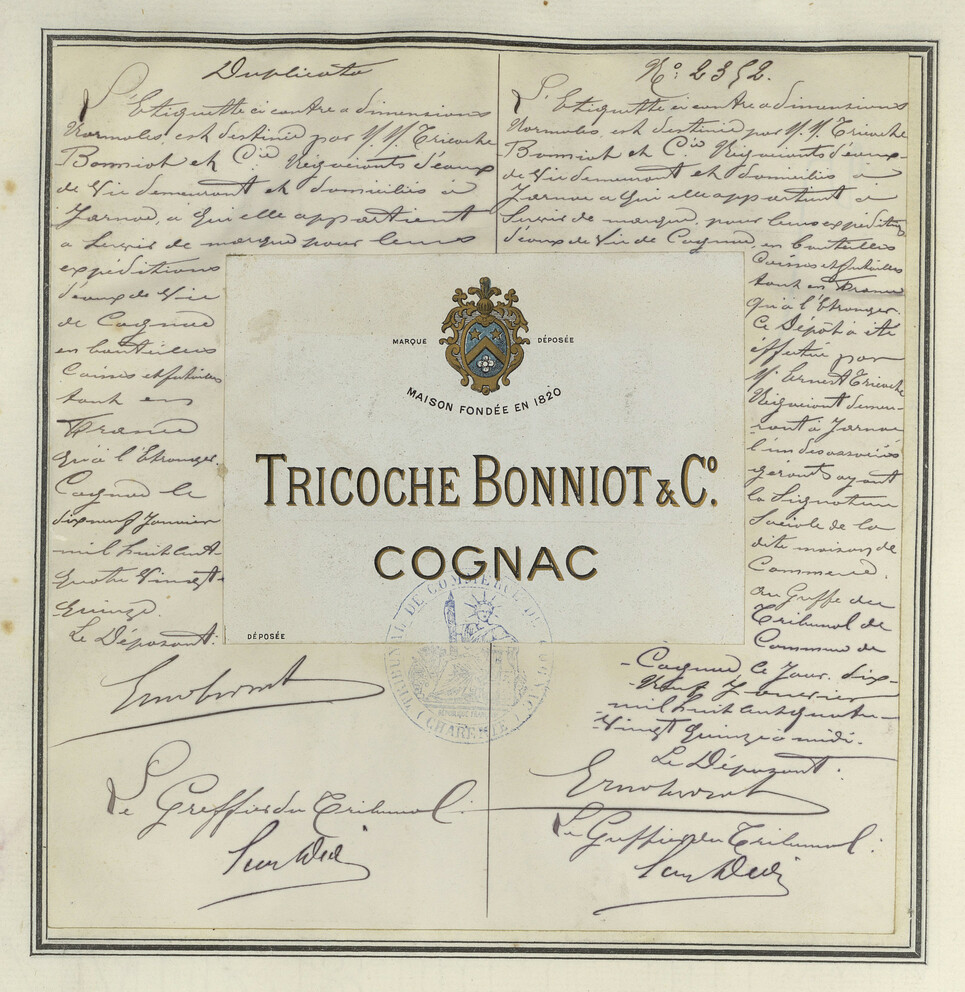 Duplicata
L'Etiquette ci contre a dimensions
Normales, est destinée par M. M. Tricoche
Bonniot et Cie Négociants d'eaux
de Vie demeurant et domiciliés à
Jarnac, à qui elle appartient
a Servir de marque pour leurs
expéditions
d'eaux de Vie
de Cognac
en bouteilles
Caisses et futailles
tant en
France
qu'à l'Etranger.
Cognac le
dix neuf Janvier
mil huit cent
quatre Vingt
Quinze.
Le Déposant:
Le Greffier du Tribunal.
No: 2352.
L'Etiquette ci contre a dimensions
Normales, est destinée par M. M. Tricoche
Bonniot et Cie Négociants d'eaux
de Vie demeurant et domiciliés à
Jarnac a qui elle appartient à
Servir de marque, pour leurs expéditions
d'eaux de Vie de Cognac, en bouteilles
Caisses et futailles
tant en France
qu'à l'Etranger.
Ce Dépôt a été
effectué par
M. Ernest Tricoche
Négociant demeu-
rant à Jarnac
l'un des associés
gerants ayant
la Signature
Sociale de la
dite maison de
Commerce.
au Greffe du
Tribunal de
Commerce de
Cognac le Jour dix-
Neuf Janvier
mil huit cent quatre-
Vingt Quinze à midi.
Le Déposant:
Le Greffier du Tribunal:
MARQUE DÉPOSÉE
MAISON FONDÉE EN 1820
TRICOCHE BONNIOT & Co.
COGNAC
DÉPOSÉE
TRIBUNAL DE COMMERCE DE COGNAC
(CHARENTE)